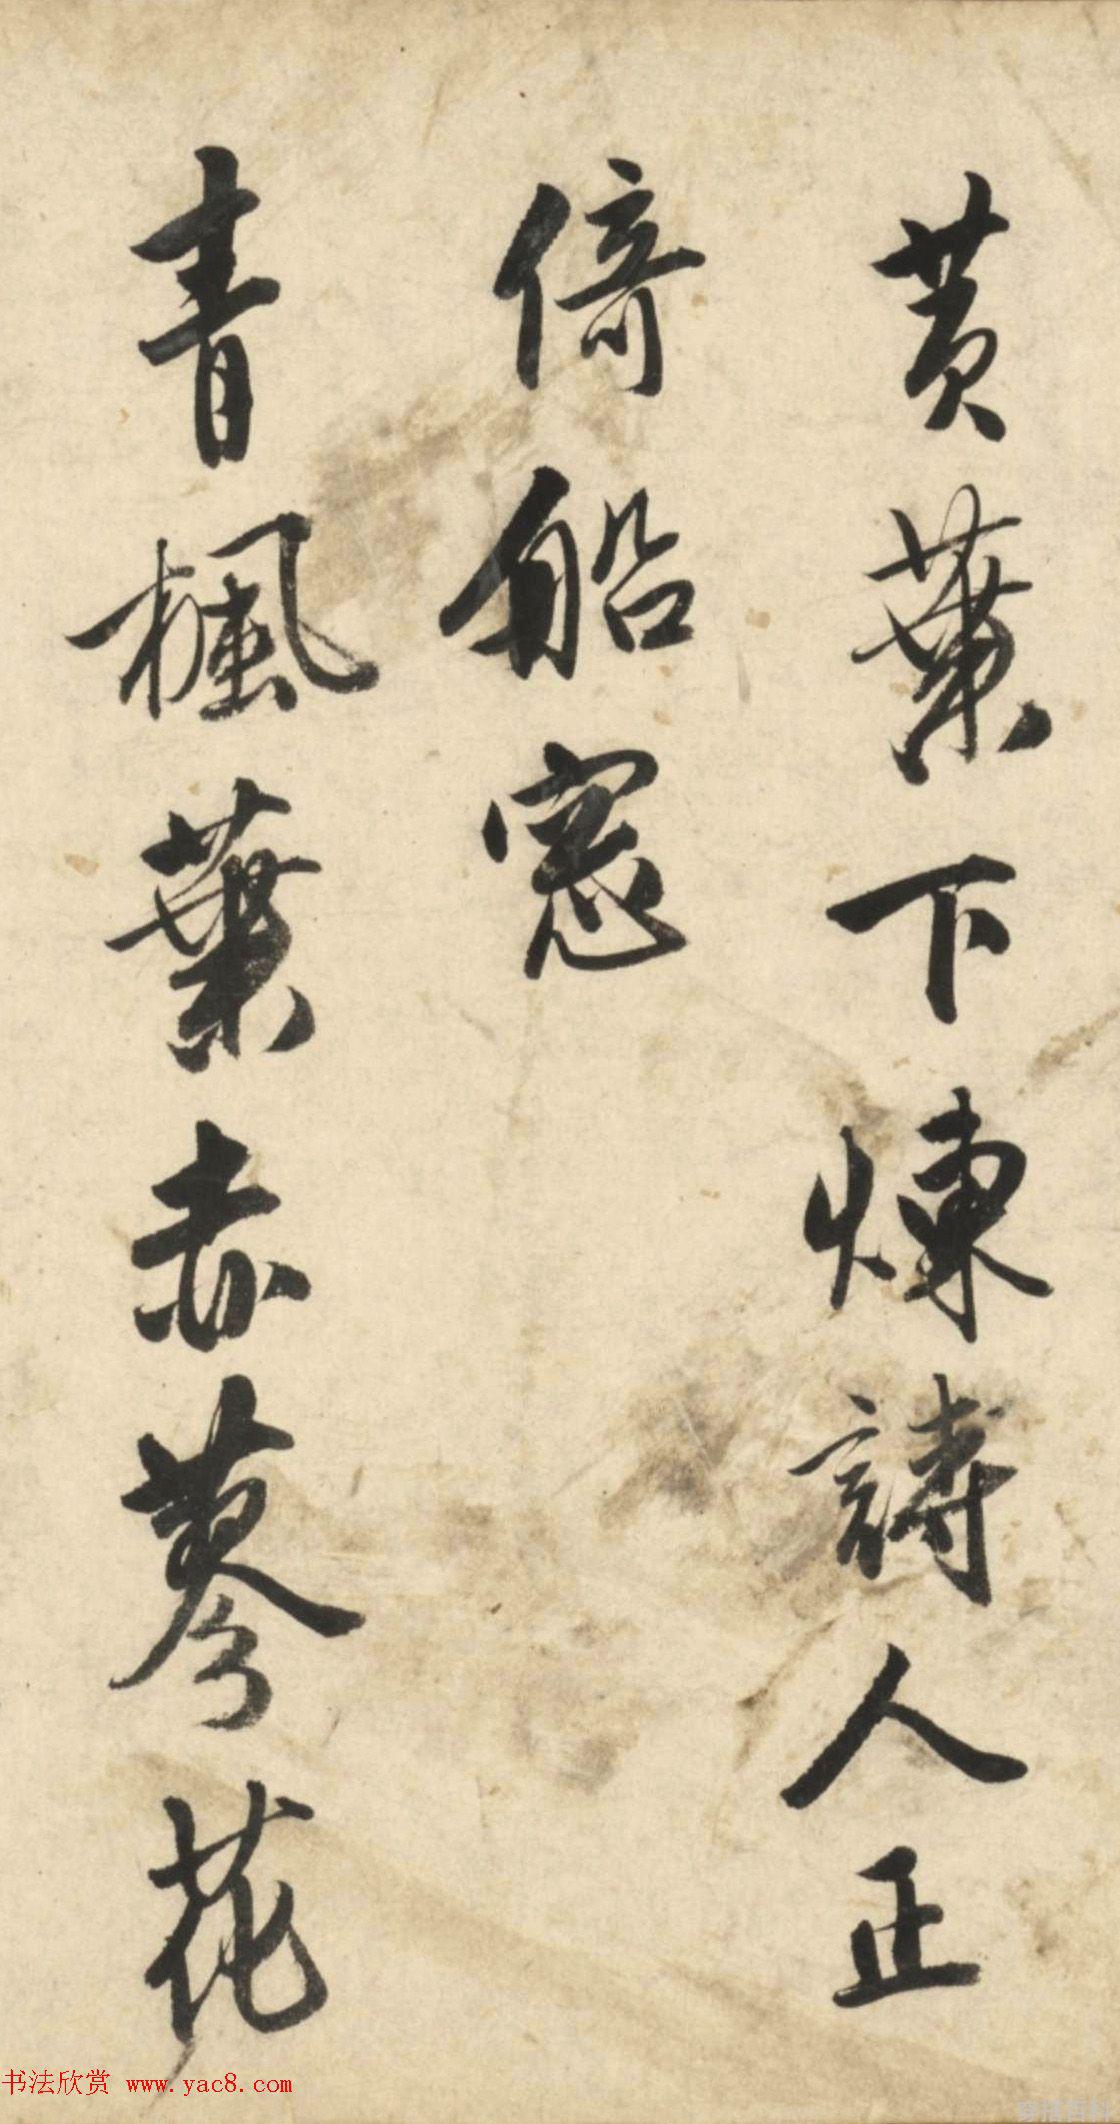 黄葉下煉詩人正
倚船窓
青楓葉赤蓼花
书法欣赏 www.yac8.com